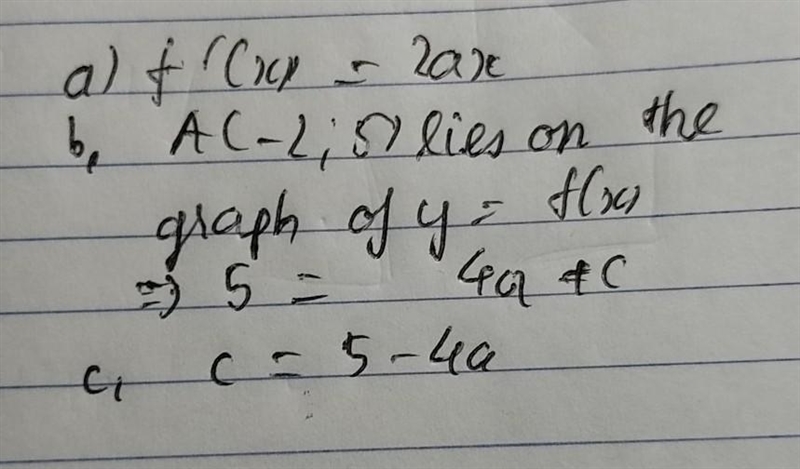 a) f'(x) = 2ax
b, A(-2; 5) lies on the
graph of y = f(x)
=> 5 = 4a + c
c, c = 5 - 4a